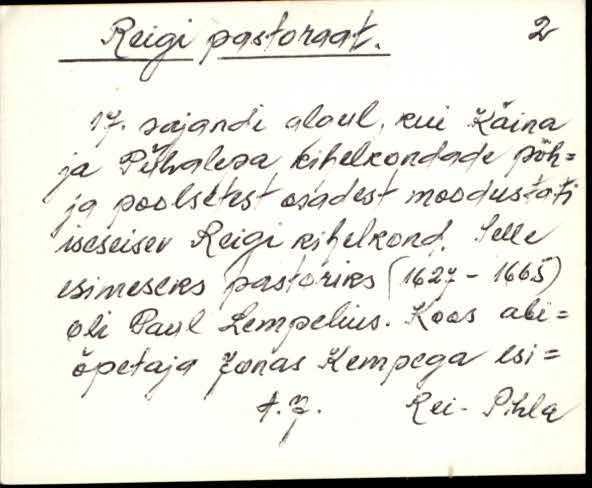 Reigi pastoraat. 2
17. sajandi alaul, kui Käina
ja Pühalepa kihelkondade põh=
ja poolsetest osadest moodustati
iseseisev Reigi kihelkond. Selle
esimeseks pastoriks (1627 - 1665)
oli Paul Lempelius. Koos abi=
õpetaja Jonas Kempega esi=
Rei - Pihla